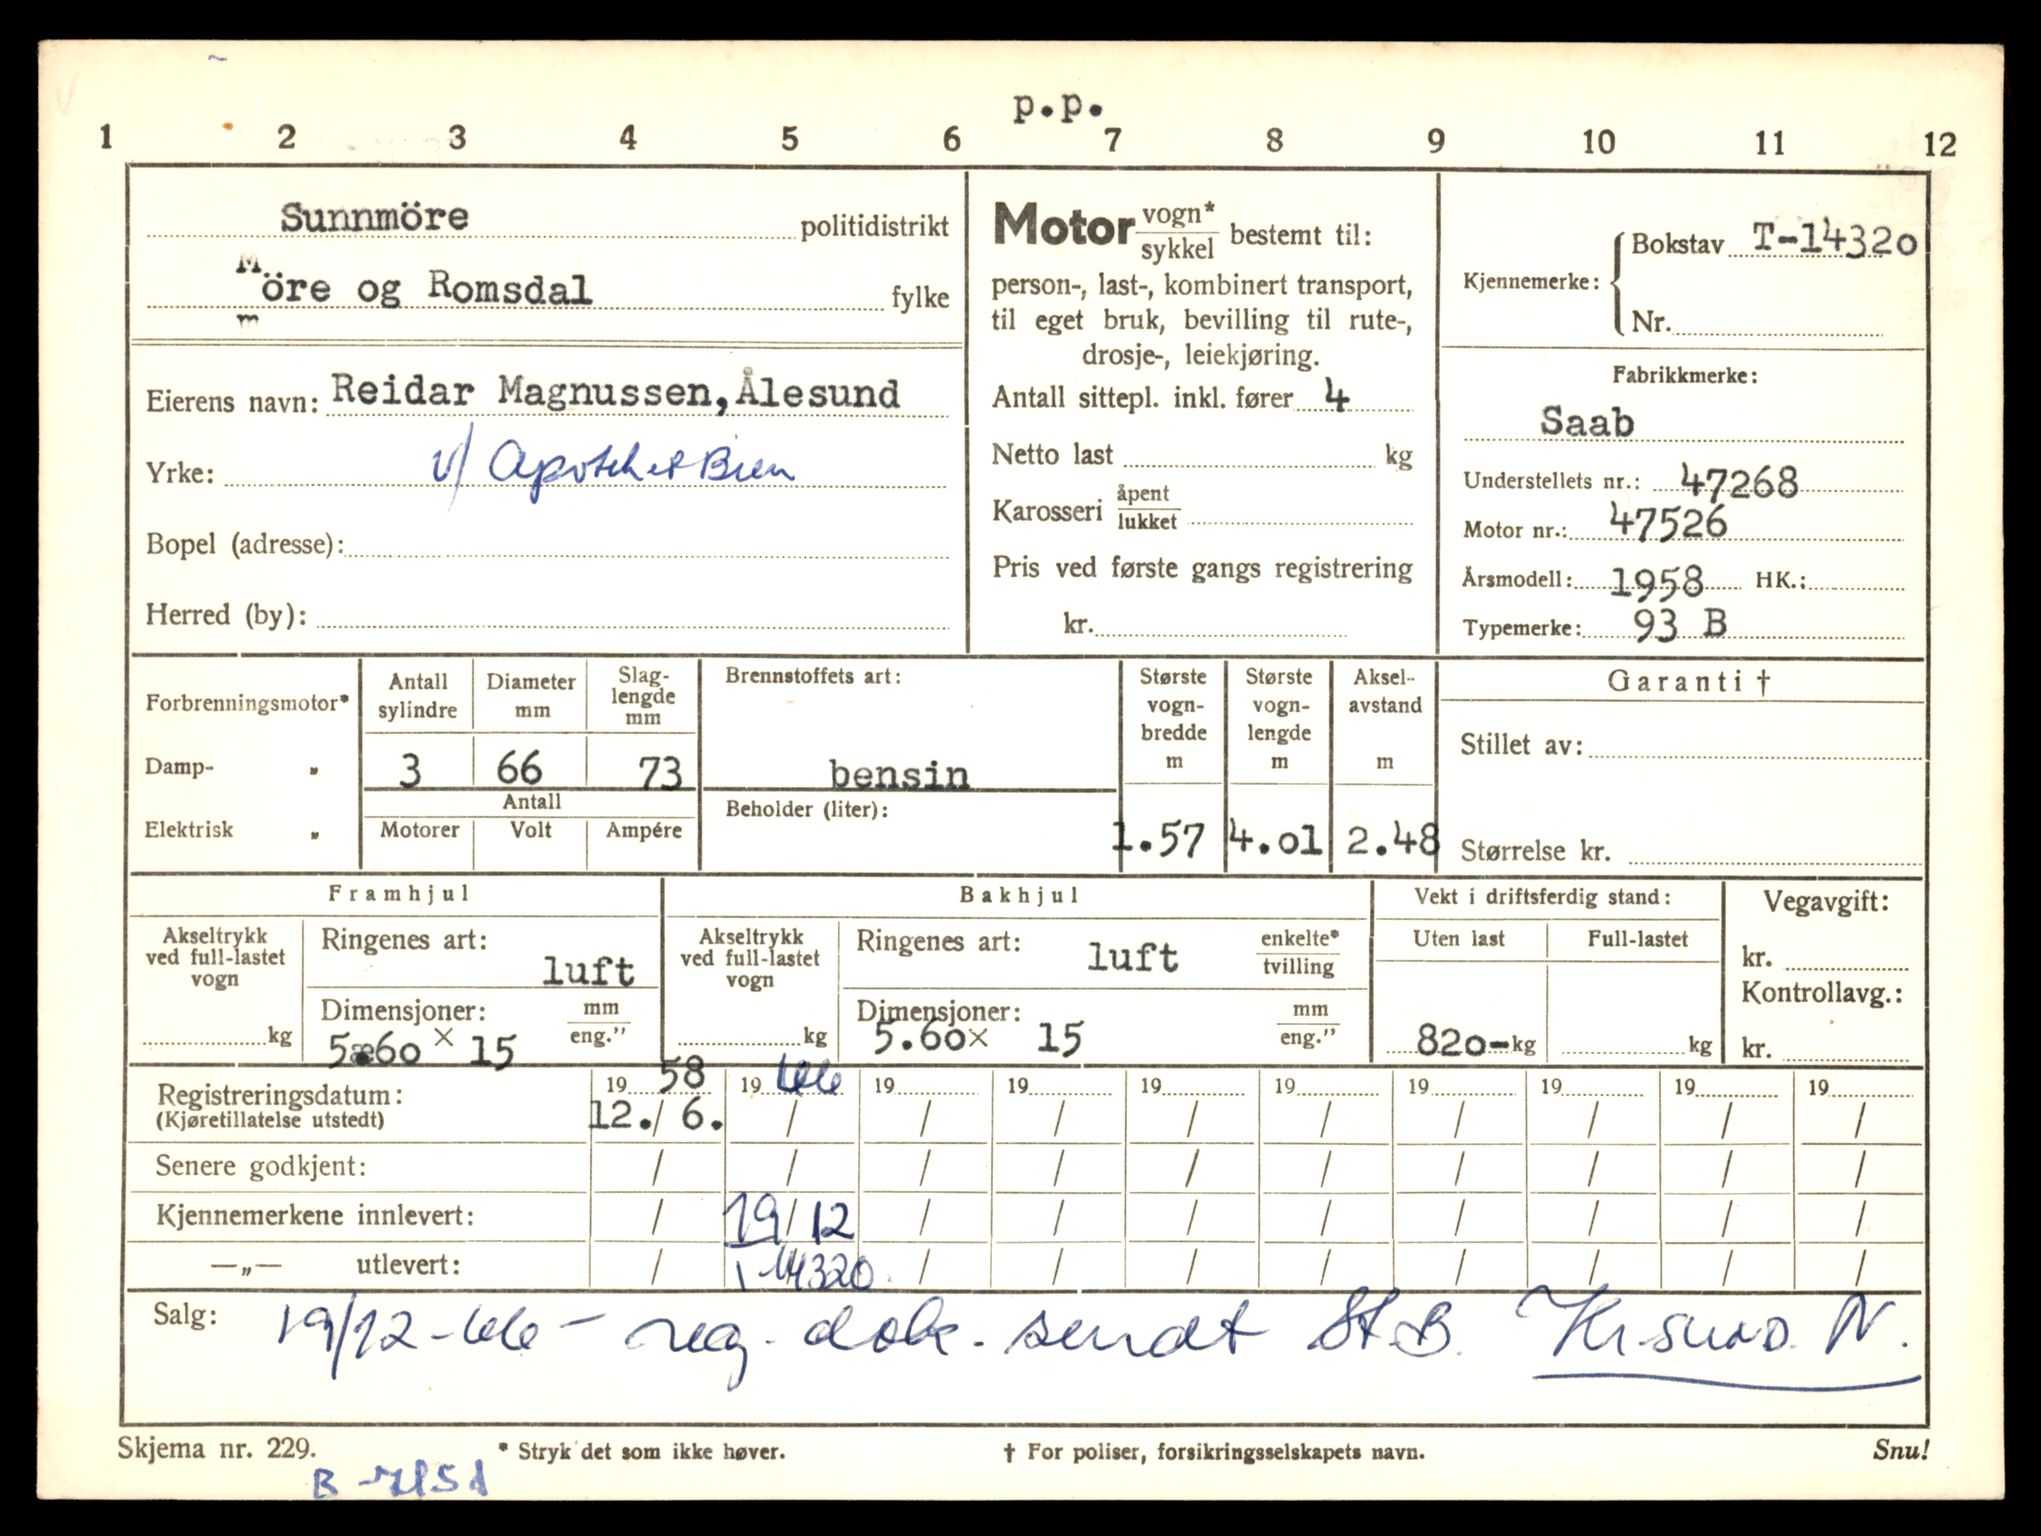 p.p.
1 2 3 4 5 6 7 8 9 10 11 12
Sunnmöre politidistrikt
Möre og Romsdal fylke
m
Eierens navn: Reidar Magnussen, Ålesund
Yrke: v/ Apoteket Bien
Bopel (adresse):
Herred (by):
Motor vogn* / sykkel bestemt til:
person-, last-, kombinert transport,
til eget bruk, bevilling til rute-,
drosje-, leiekjøring.
Antall sittepl. inkl. fører 4
Netto last kg
Karosseri åpent / lukket
Pris ved første gangs registrering
kr.
Kjennemerke: Bokstav T-14320
Nr.
Fabrikkmerke:
Saab
Understellets nr.: 47268
Motor nr.: 47526
Årsmodell: 1958 HK.:
Typemerke: 93 B
Forbrenningsmotor*
Damp- „
Elektrisk „
Antall sylindre
Diameter mm
Slag-
lengde
mm
3 66 73
Antall
Motorer Volt Ampére
Brennstoffets art:
bensin
Beholder (liter):
Største
vogn-
bredde
m
1.57
Største
vogn-
lengde
m
4.01
Aksel-
avstand
m
2.48
Garanti †
Stillet av:
Størrelse kr.
Framhjul
Akseltrykk
ved full-lastet
vogn
kg
Ringenes art:
luft
Dimensjoner: mm / eng.”
5.60 × 15
Bakhjul
Akseltrykk
ved full-lastet
vogn
kg
Ringenes art: luft enkelte* / tvilling
Dimensjoner: mm / eng.”
5.60× 15
Vekt i driftsferdig stand:
Uten last Full-lastet
820- kg kg
Vegavgift:
kr.
Kontrollavg.:
kr.
Registreringsdatum: 19 58 19 66 19 19 19 19 19 19 19 19
(Kjøretillatelse utstedt) 12./ 6. / / / / / / / / /
Senere godkjent: / / / / / / / / / /
Kjennemerkene innlevert: / 19/12 / / / / / / / /
—„— utlevert: / T-14320 / / / / / / / /
Salg: 19/12-66 - reg. dok. sendt St.B. Kr.sund. N.
Skjema nr. 229. * Stryk det som ikke høver. † For poliser, forsikringsselskapets navn. Snu!